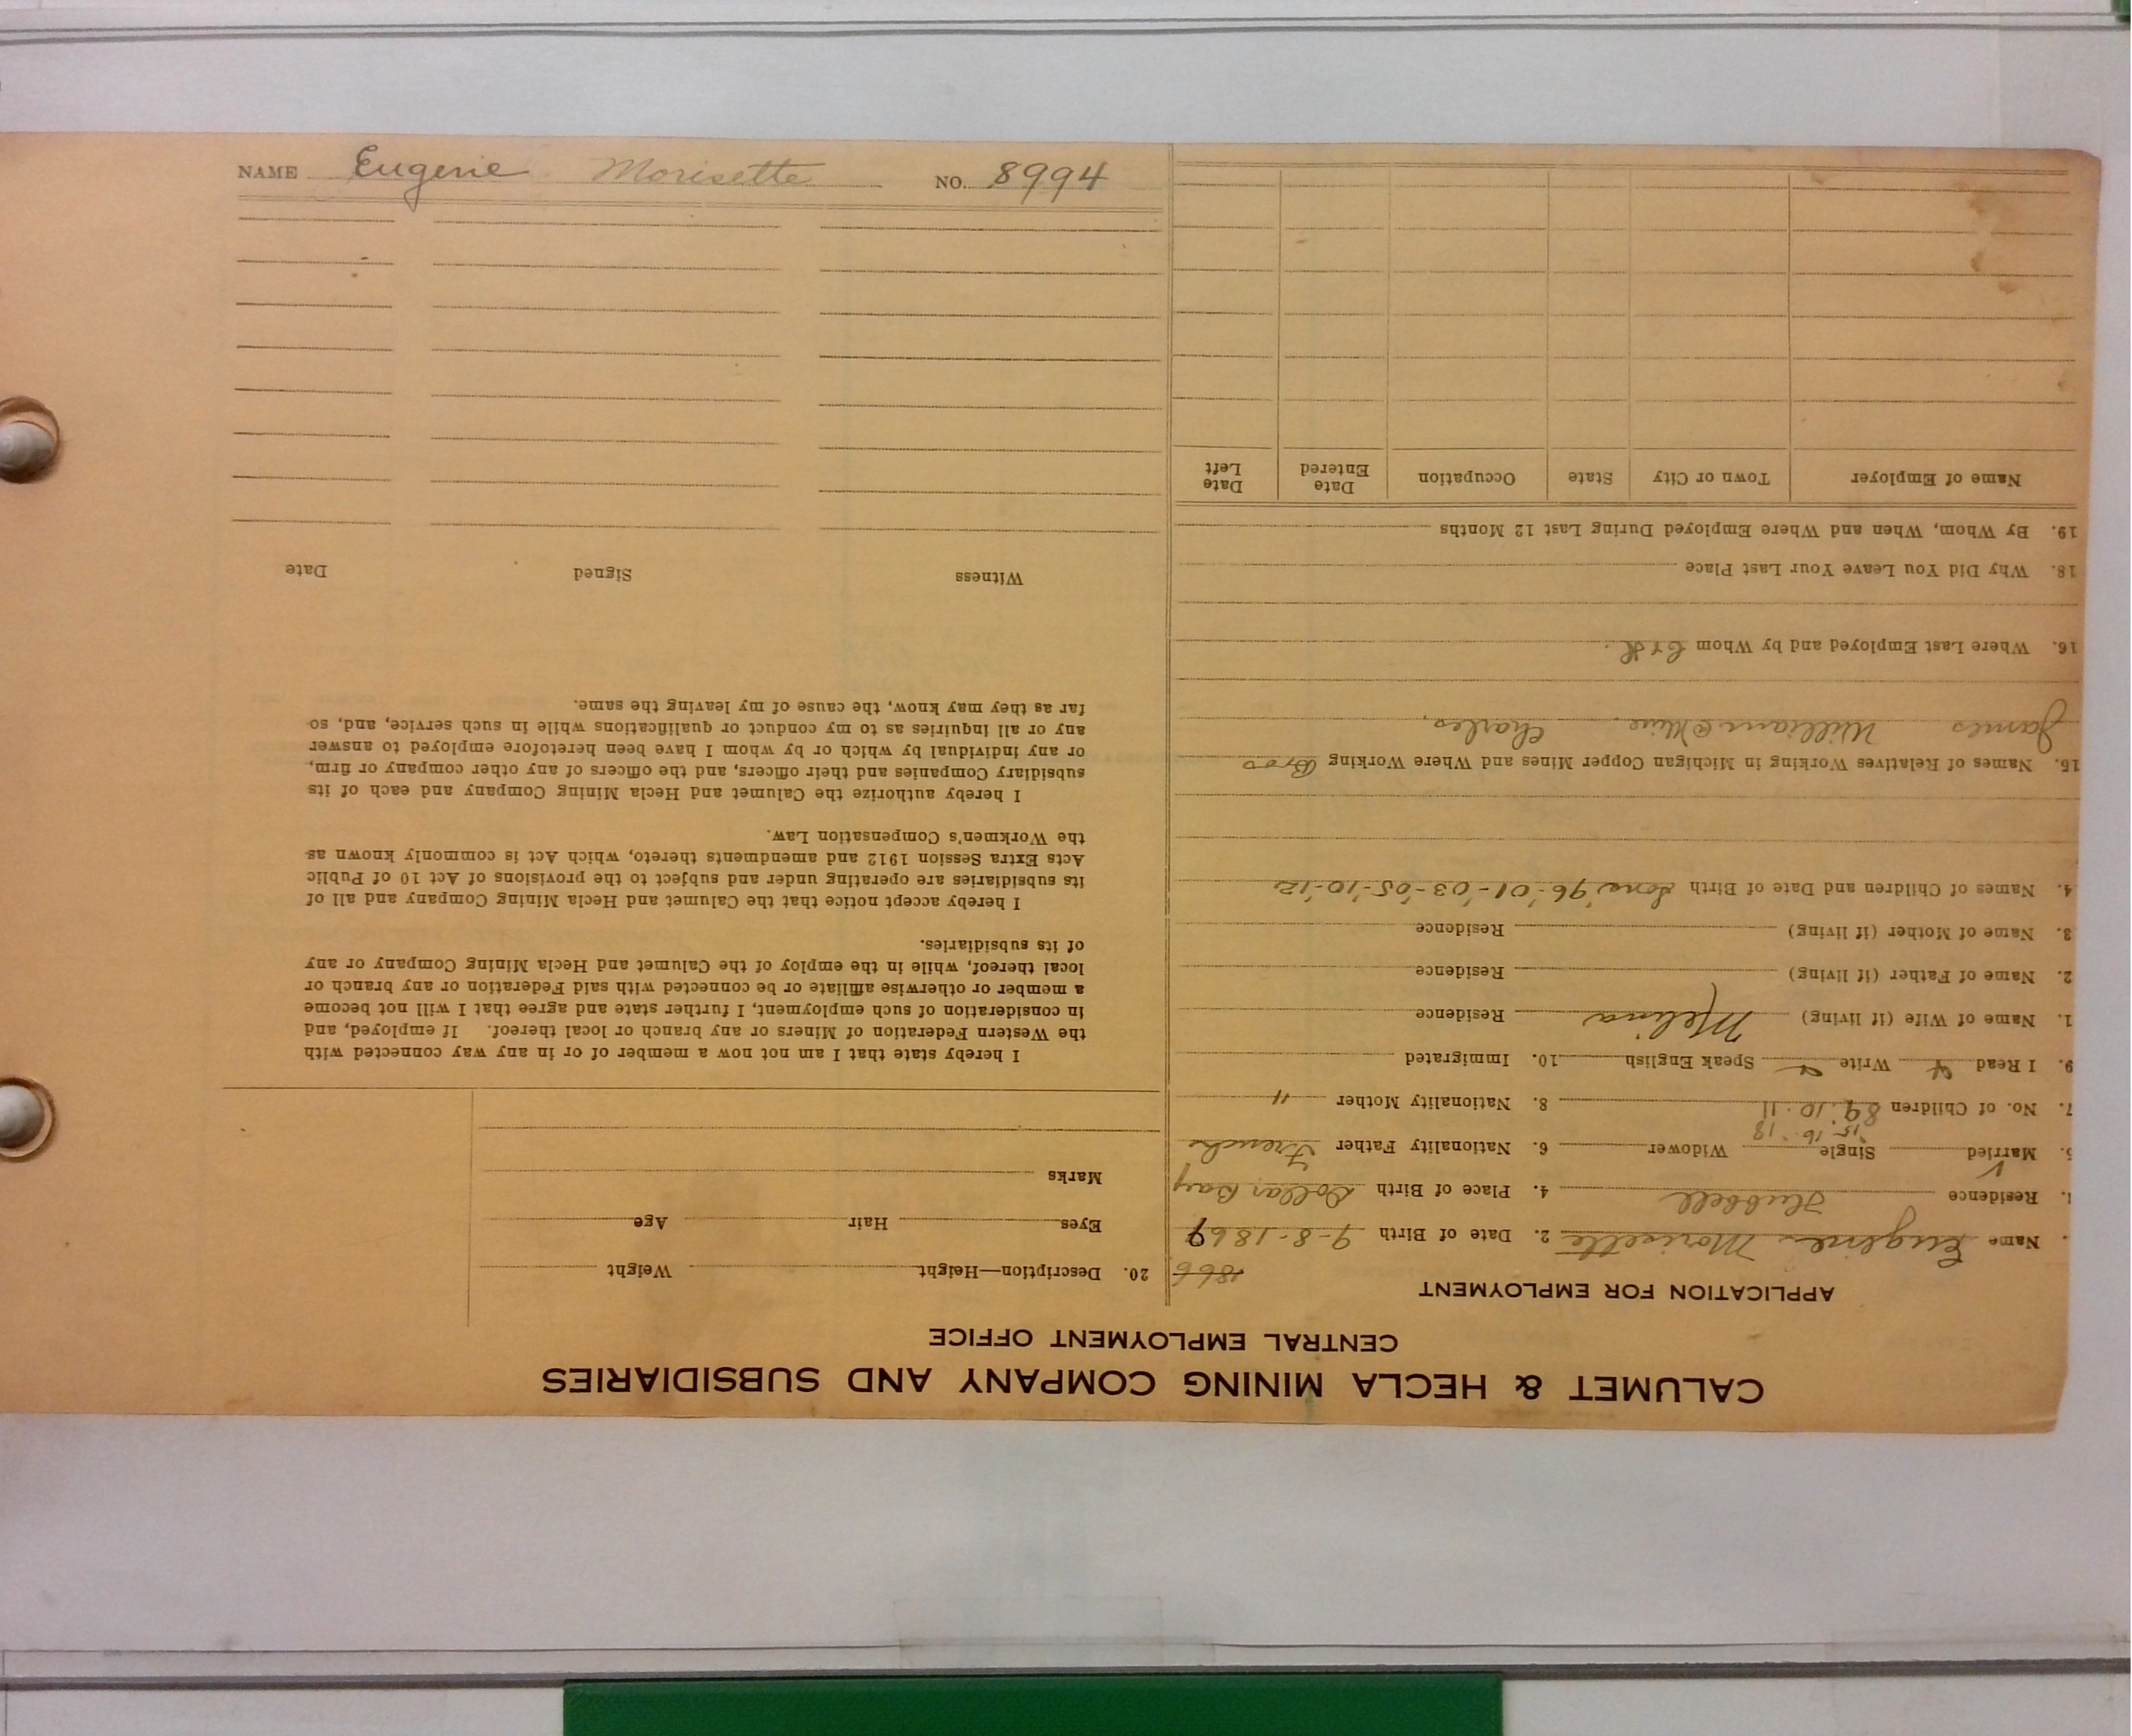 CALUMET & HECLA MINING COMPANY AND SUBSIDIARIES
CENTRAL EMPLOYMENT OFFICE
APPLICATION FOR EMPLOYMENT
1866
Name Eugene Morisette 2. Date of Birth 9-8-1869
Residence Hubbell 4. Place of Birth Dollar Bay
Married V Single Widower 6. Nationality Father French
15. 16. 18
7. No. of Children 8 9. 10. 11 8. Nationality Mother "
9. I Read Write Speak English 10. Immigrated
1. Name of Wife (if living) Melina Residence
2. Name of Father (if living) Residence
3. Name of Mother (if living) Residence
4. Names of Children and Date of Birth '96-'01-'03-'05-'10-'12
15. Names of Relatives Working in Michigan Copper Mines and Where Working Bros
James William C Mine. Charles,
16. Where Last Employed and by Whom C & H.
18. Why Did You Leave Your Last Place
19. By Whom, When and Where Employed During Last 12 Months
Name of Employer Town or City State Occupation Date Entered Date Left
20. Description—Height Weight
Eyes Hair Age
Marks
I hereby state that I am not now a member of or in any way connected with
the Western Federation of Miners or any branch or local thereof. If employed, and
in consideration of such employment, I further state and agree that I will not become
a member or otherwise affiliate or be connected with said Federation or any branch or
local thereof, while in the employ of the Calumet and Hecla Mining Company or any
of its subsidiaries.
I hereby accept notice that the Calumet and Hecla Mining Company and all of
its subsidiaries are operating under and subject to the provisions of Act 10 of Public
Acts Extra Session 1912 and amendments thereto, which Act is commonly known as
the Workmen's Compensation Law.
I hereby authorize the Calumet and Hecla Mining Company and each of its
subsidiary Companies and their officers, and the officers of any other company or firm,
or any individual by which or by whom I have been heretofore employed to answer
any or all inquiries as to my conduct or qualifications while in such service, and, so
far as they may know, the cause of my leaving the same.
Witness Signed Date
NAME Eugene Morisette NO. 8994